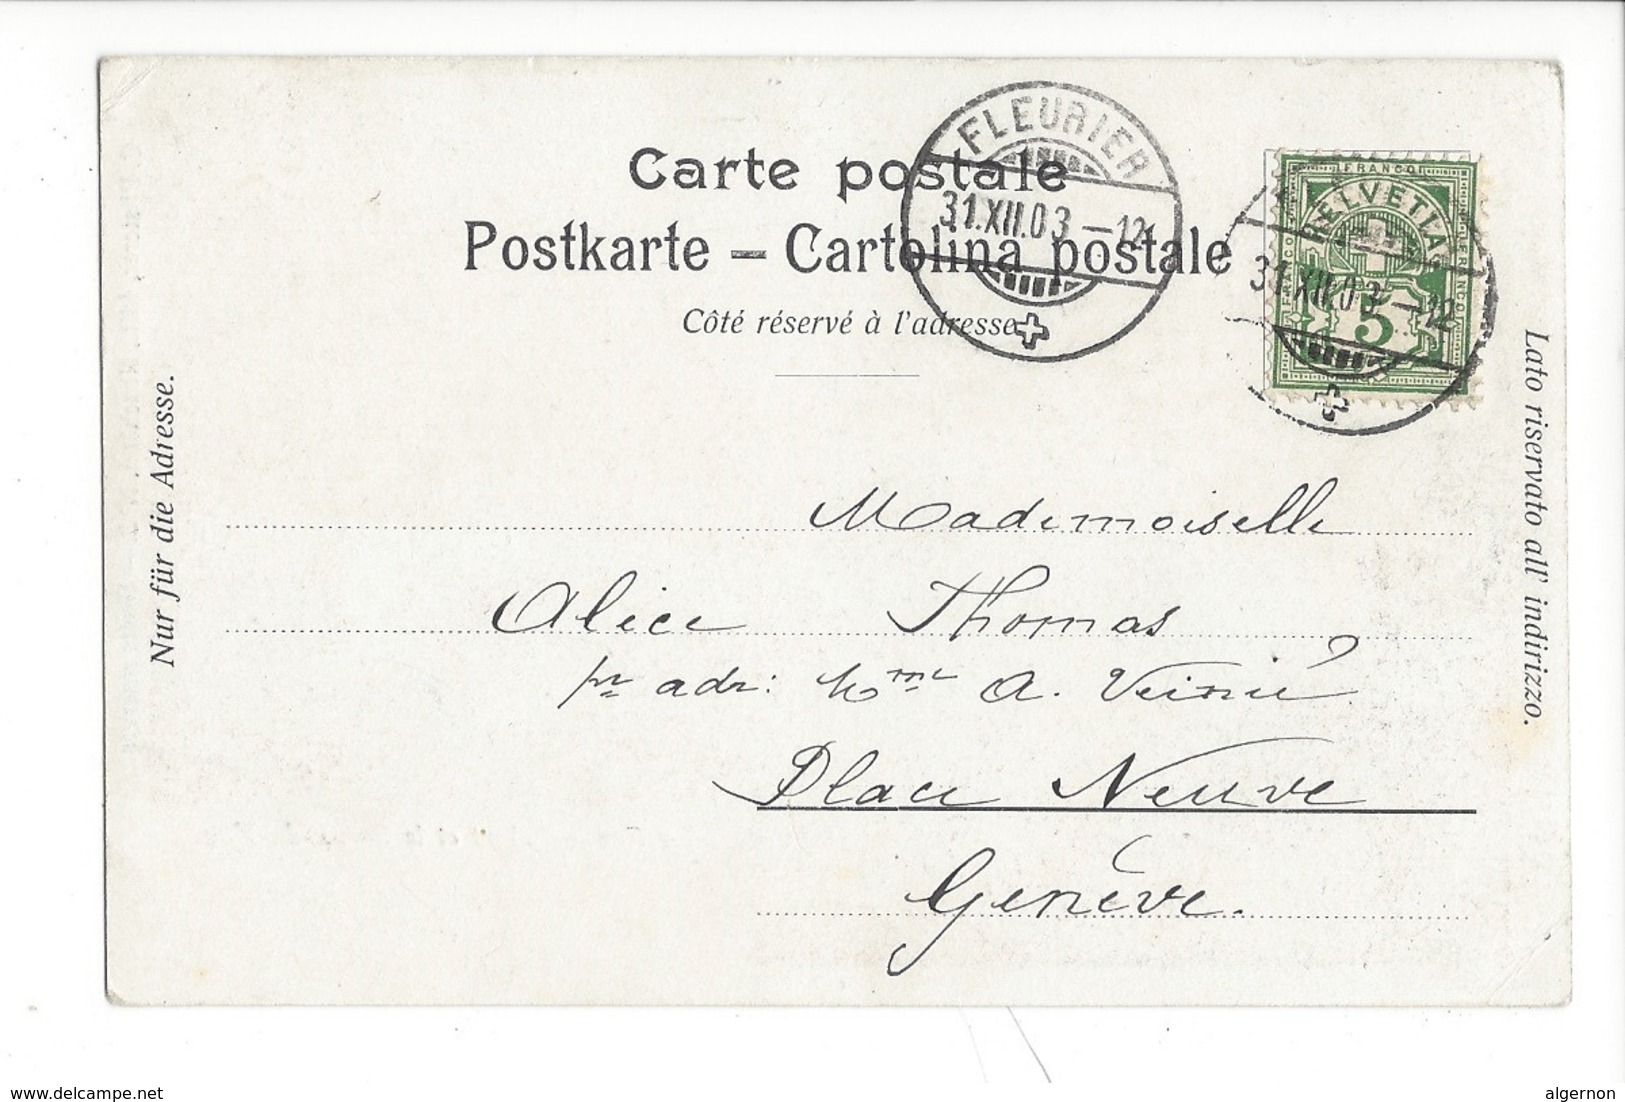 Carte postale
Postkarte – Cartolina postale
Côté réservé à l'adresse
FLEURIER
31.XII.03 – 12
FRANCO
HELVETIA
5
31.XII.03 – 12
Nur für die Adresse.
Lato riservato all' indirizzo.
Mademoiselle
Alice Thomas
pr adr: Mme A.
Place Neuve
Genève.
www.delcampe.net
algernon